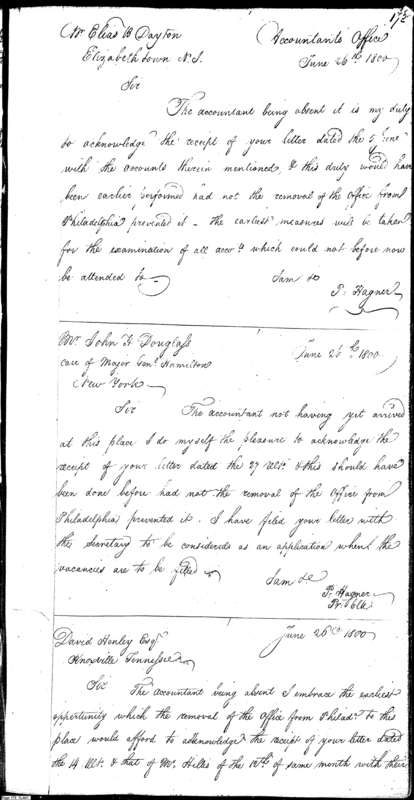 175
Mr Elias B Dayton
Accountants Office
Elizabeth town N.J.
June 26th 1800
Sir
The accountant being absent it is my duty
to acknowledge the receipt of your letter dated the 5 June
with the accounts therein mentioned, & this duty would have
been earlier performed had not the removal of the Office from
Philadelphia prevented it - the earliest measures will be taken
for the examination of all accots which could not before now
be attended to -
I am &c
P. Hagner
Mr John H Douglass
June 26th 1800
care of Major Genl Hamilton
New York
Sir
The accountant not having yet arrived
at this place I do myself the pleasure to acknowledge the
receipt of your letter dated the 27 Ulto. & this should have
been done before had not the removal of the Office from
Philadelphia prevented it. I have filed your letter with
the Secretary to be considered as an application when the
vacancies are to be filled
I am &c
P. Hagner
Pr. Clk
David Henley Esqr
June 26th 1800
Knoxville Tennessee
Sir The accountant being absent I embrace the earliest
opportunity which the removal of the Office from Philada. to this
place would afford to acknowledge the receipt of your letter dated
the 14 Ult. & that of Mr. Hillis of the 12th of same month with their